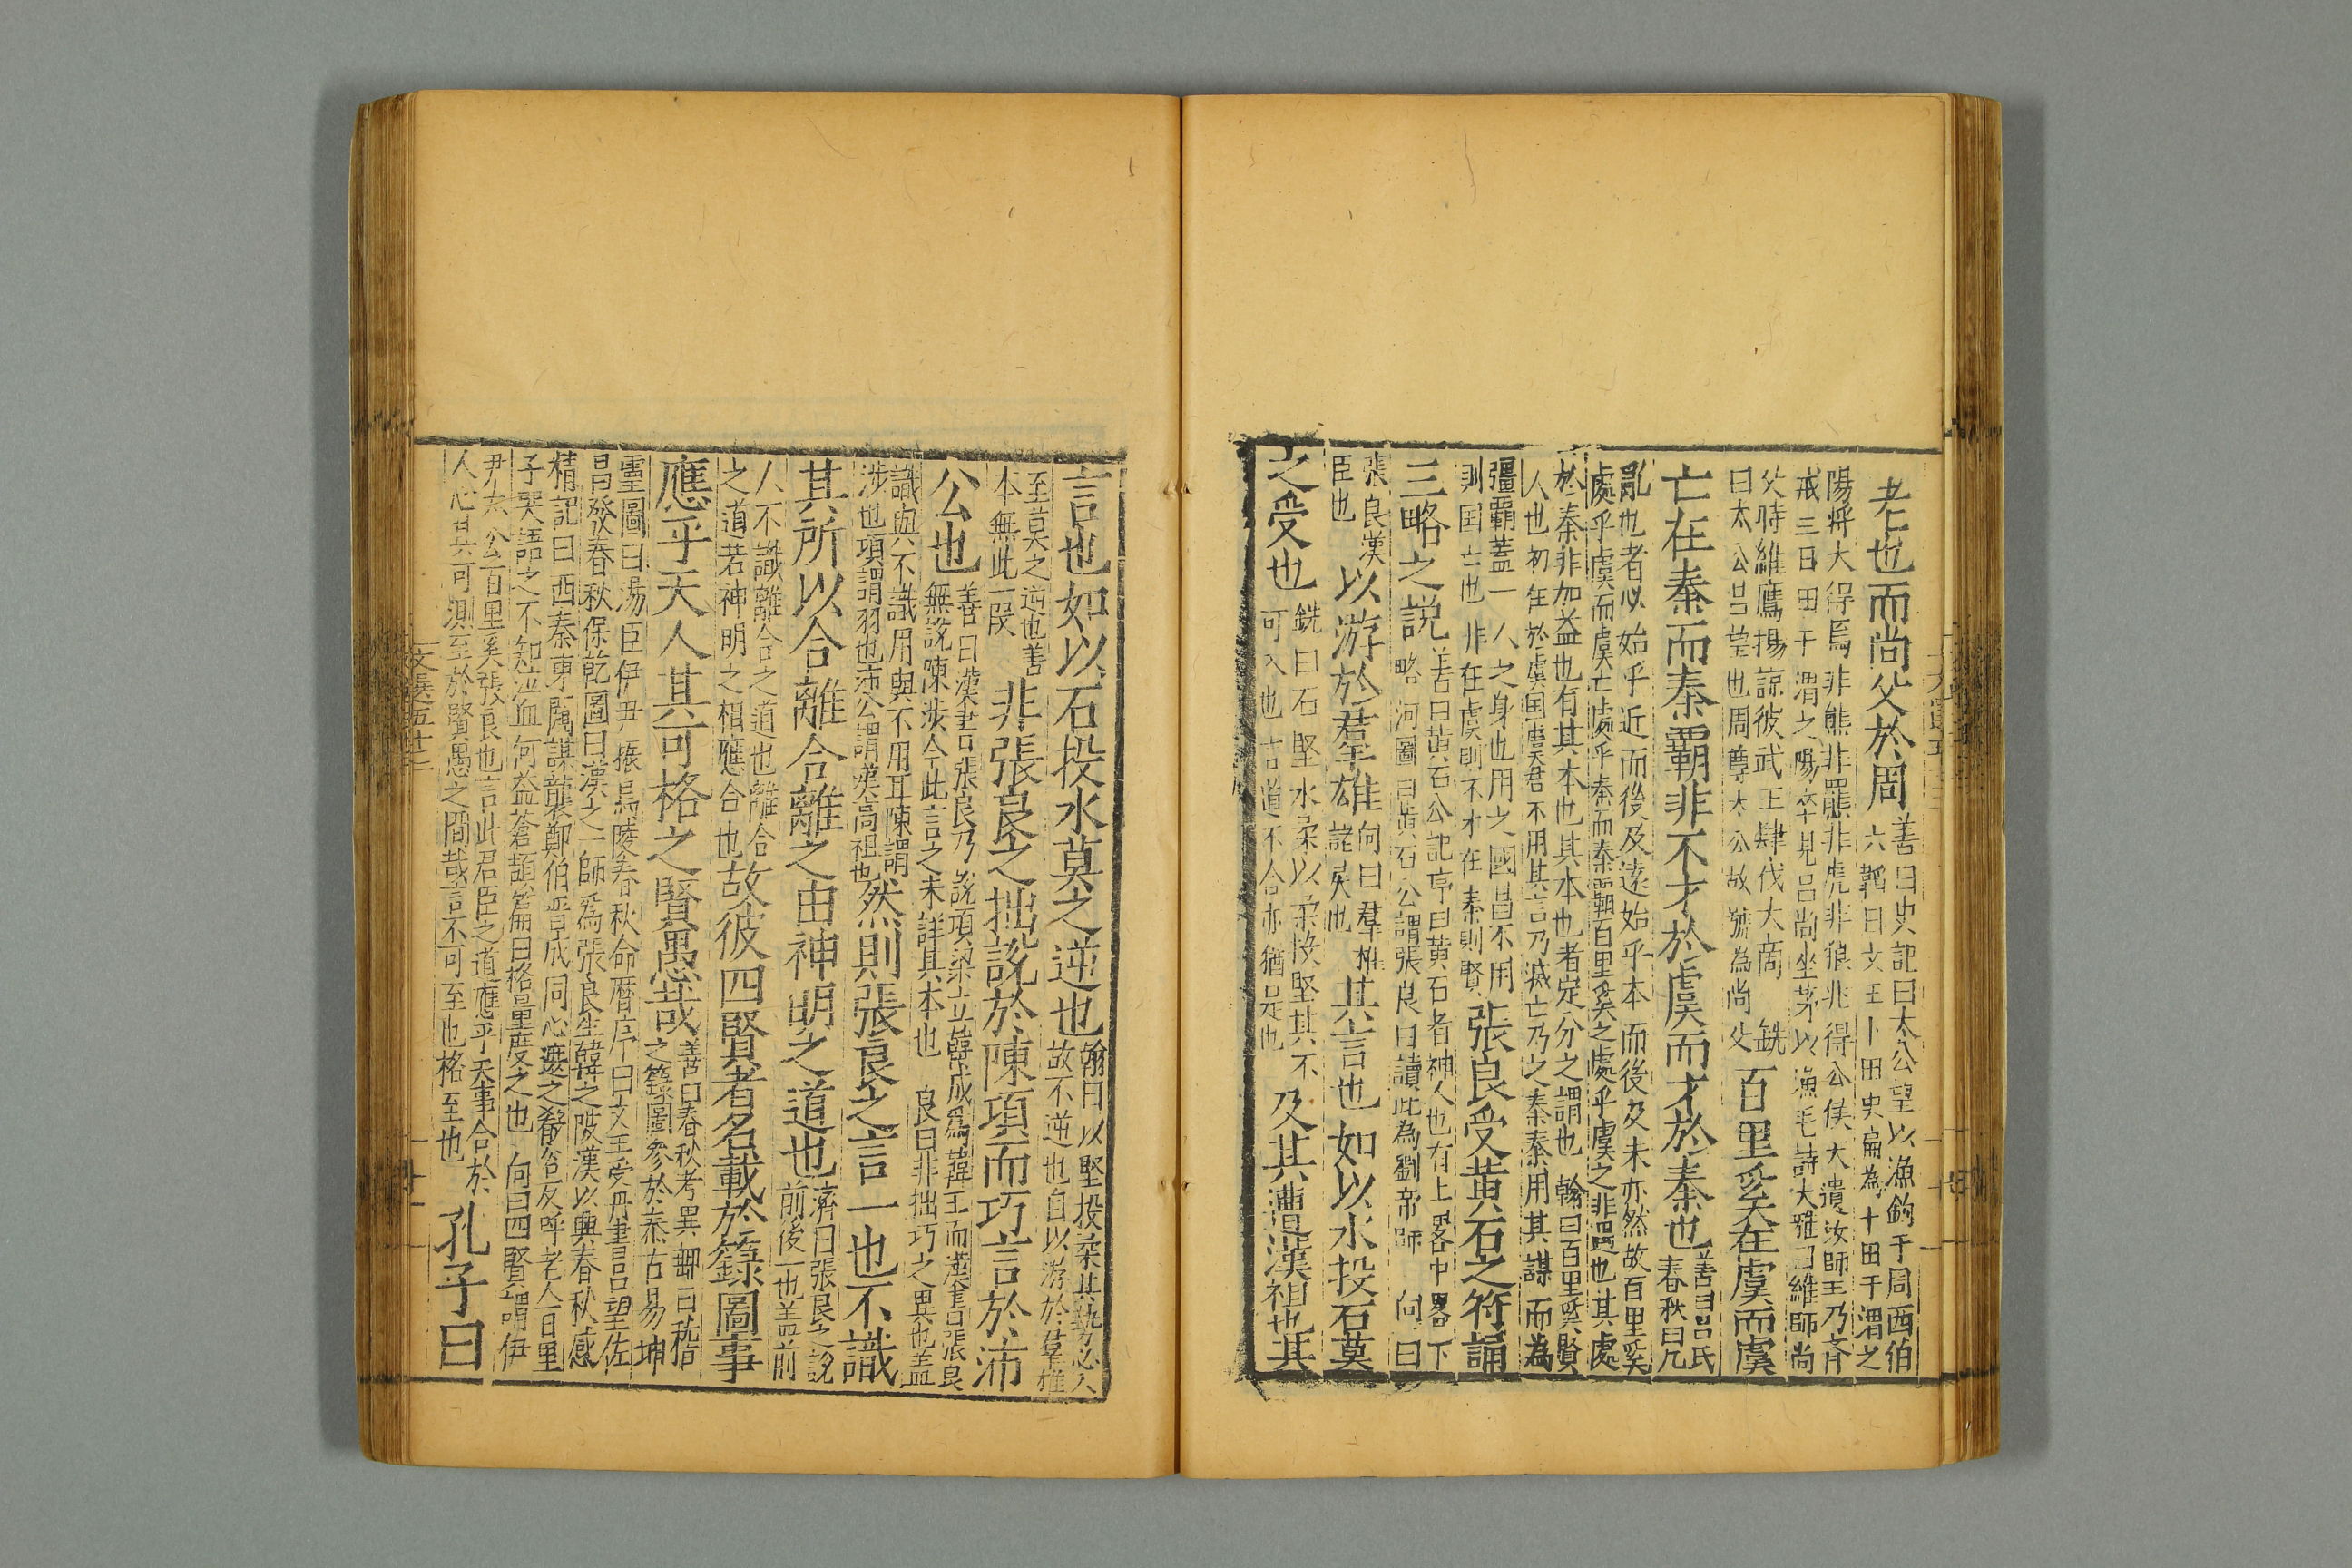 老也而尚父於周善曰史記曰太公望以漁釣于周西伯
六韜曰文王卜田史扁為卜田于渭之
陽將大得焉非熊非羆非虎非狼兆得公侯天遺汝師王乃齊
戒三日田于渭之陽卒見呂尚坐茅以漁毛詩大雅曰維師尚
父時維鷹揚諒彼武王肆伐大商 銑
曰太公呂望也周尊太公故號為尚父百里奚在虞而虞
亡在秦而秦霸非不才於虞而才於秦也善曰呂氏
春秋曰凡
亂也者必始乎近而後及遠始乎本而後及末亦然故百里奚
處乎虞而虞亡處乎秦而秦霸百里奚之處乎虞之非愚也其處
於秦非加益也有其本也其本也者定分之謂也 翰曰百里奚賢
人也初在於虞国虞君不用其言乃滅亡乃之秦秦用其謀而為
彊霸蓋一人之身也用之國昌不用
則国亡也非在虞則不才在秦則賢張良受黃石之符誦
三略之説善曰黃石公記序曰黃石者神人也有上畧中畧下
略 河圖曰黃石公謂張良曰讀此為劉帝師 向曰
張良漢
臣也以游於羣雄向曰羣雄
諸侯也其言也如以水投石莫
之受也銑曰石堅水柔以柔投堅其不
可入也古道不合亦猶是也及其遭漢祖也其
言也如以石投水莫之逆也翰曰以堅投柔其勢必入
故不逆也自以游於羣雄
至莫之逆也善
本無此一段非張良之拙說於陳項而巧言於沛
公也善曰漢書張良乃說項梁立韓成爲韓王而漢書張良
無說陳涉今此言之未詳其本也 良曰非拙巧之異也蓋
識與不識用與不用耳陳謂
涉也項謂羽也沛公謂漢高祖也然則張良之言一也不識
其所以合離合離之由神明之道也濟曰張良之說
前後一也蓋前
人不識離合之道也離合
之道若神明之相應合也故彼四賢者名載於籙圖事
應乎天人其可格之賢愚哉善曰春秋考異郵曰稽
之籙圖參於泰古易坤
靈圖曰湯臣伊尹振鳥陵春秋命曆序曰文王受丹書呂望佐
昌發春秋保乾圖曰漢之一師爲張良生韓之陂漢以興春秋感
精記曰西秦東闚謀襲鄭伯晉戎同心遮之殽谷反呼老人百里
子哭語之不知泣血何益蒼頡篇曰格量度之也 向曰四賢謂伊
尹太公百里奚張良也言此君臣之道應乎天事合於
人心其可測至於賢愚之間哉言不可至也格至也孔子曰
文選五十三
十一